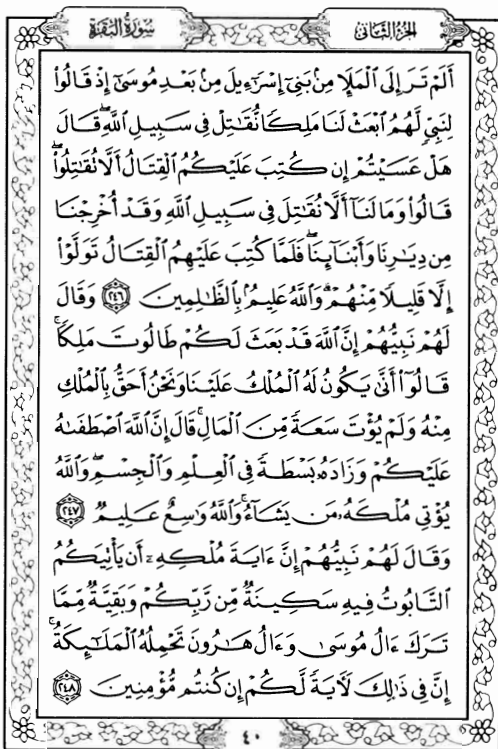 سُورَةُ البَقَرَةِ
الجُزْءُ الثَّانِي
أَلَمْ تَرَ إِلَى ٱلْمَلَإِ مِنۢ بَنِىٓ إِسْرَٰٓءِيلَ مِنۢ بَعْدِ مُوسَىٰٓ إِذْ قَالُوا۟
لِنَبِىٍّ لَّهُمُ ٱبْعَثْ لَنَا مَلِكًا نُّقَـٰتِلْ فِى سَبِيلِ ٱللَّهِ ۖ قَالَ
هَلْ عَسَيْتُمْ إِن كُتِبَ عَلَيْكُمُ ٱلْقِتَالُ أَلَّا تُقَـٰتِلُوا۟ ۖ
قَالُوا۟ وَمَا لَنَآ أَلَّا نُقَـٰتِلَ فِى سَبِيلِ ٱللَّهِ وَقَدْ أُخْرِجْنَا
مِن دِيَـٰرِنَا وَأَبْنَآئِنَا ۖ فَلَمَّا كُتِبَ عَلَيْهِمُ ٱلْقِتَالُ تَوَلَّوْا۟
إِلَّا قَلِيلًا مِّنْهُمْ ۗ وَٱللَّهُ عَلِيمٌۢ بِٱلظَّـٰلِمِينَ ٢٤٦ وَقَالَ
لَهُمْ نَبِيُّهُمْ إِنَّ ٱللَّهَ قَدْ بَعَثَ لَكُمْ طَالُوتَ مَلِكًا ۚ
قَالُوٓا۟ أَنَّىٰ يَكُونُ لَهُ ٱلْمُلْكُ عَلَيْنَا وَنَحْنُ أَحَقُّ بِٱلْمُلْكِ
مِنْهُ وَلَمْ يُؤْتَ سَعَةً مِّنَ ٱلْمَالِ ۚ قَالَ إِنَّ ٱللَّهَ ٱصْطَفَىٰهُ
عَلَيْكُمْ وَزَادَهُۥ بَسْطَةً فِى ٱلْعِلْمِ وَٱلْجِسْمِ ۖ وَٱللَّهُ
يُؤْتِى مُلْكَهُۥ مَن يَشَآءُ ۚ وَٱللَّهُ وَٰسِعٌ عَلِيمٌ ٢٤٧
وَقَالَ لَهُمْ نَبِيُّهُمْ إِنَّ ءَايَةَ مُلْكِهِۦٓ أَن يَأْتِيَكُمُ
ٱلتَّابُوتُ فِيهِ سَكِينَةٌ مِّن رَّبِّكُمْ وَبَقِيَّةٌ مِّمَّا
تَرَكَ ءَالُ مُوسَىٰ وَءَالُ هَـٰرُونَ تَحْمِلُهُ ٱلْمَلَـٰٓئِكَةُ ۚ
إِنَّ فِى ذَٰلِكَ لَـَٔايَةً لَّكُمْ إِن كُنتُم مُّؤْمِنِينَ ٢٤٨
٤٠